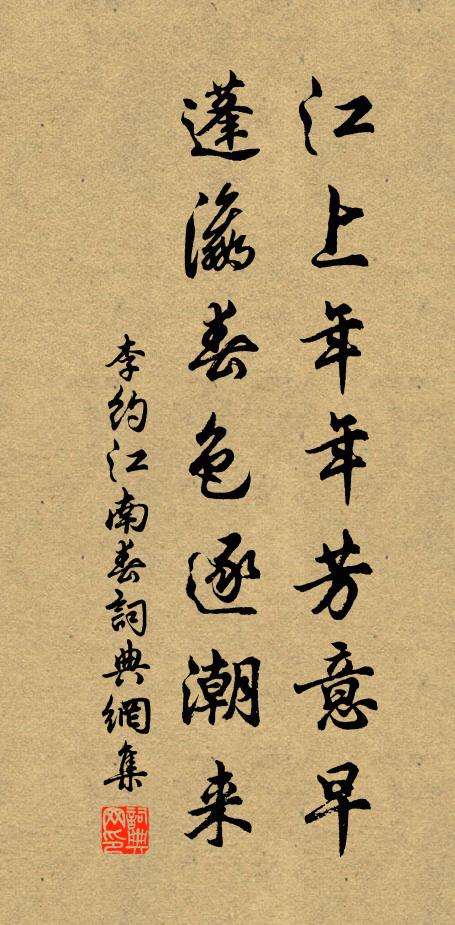 江上年年芳意早
蓬瀛春色逐潮来
李約江南春詞典網集
詞典網印